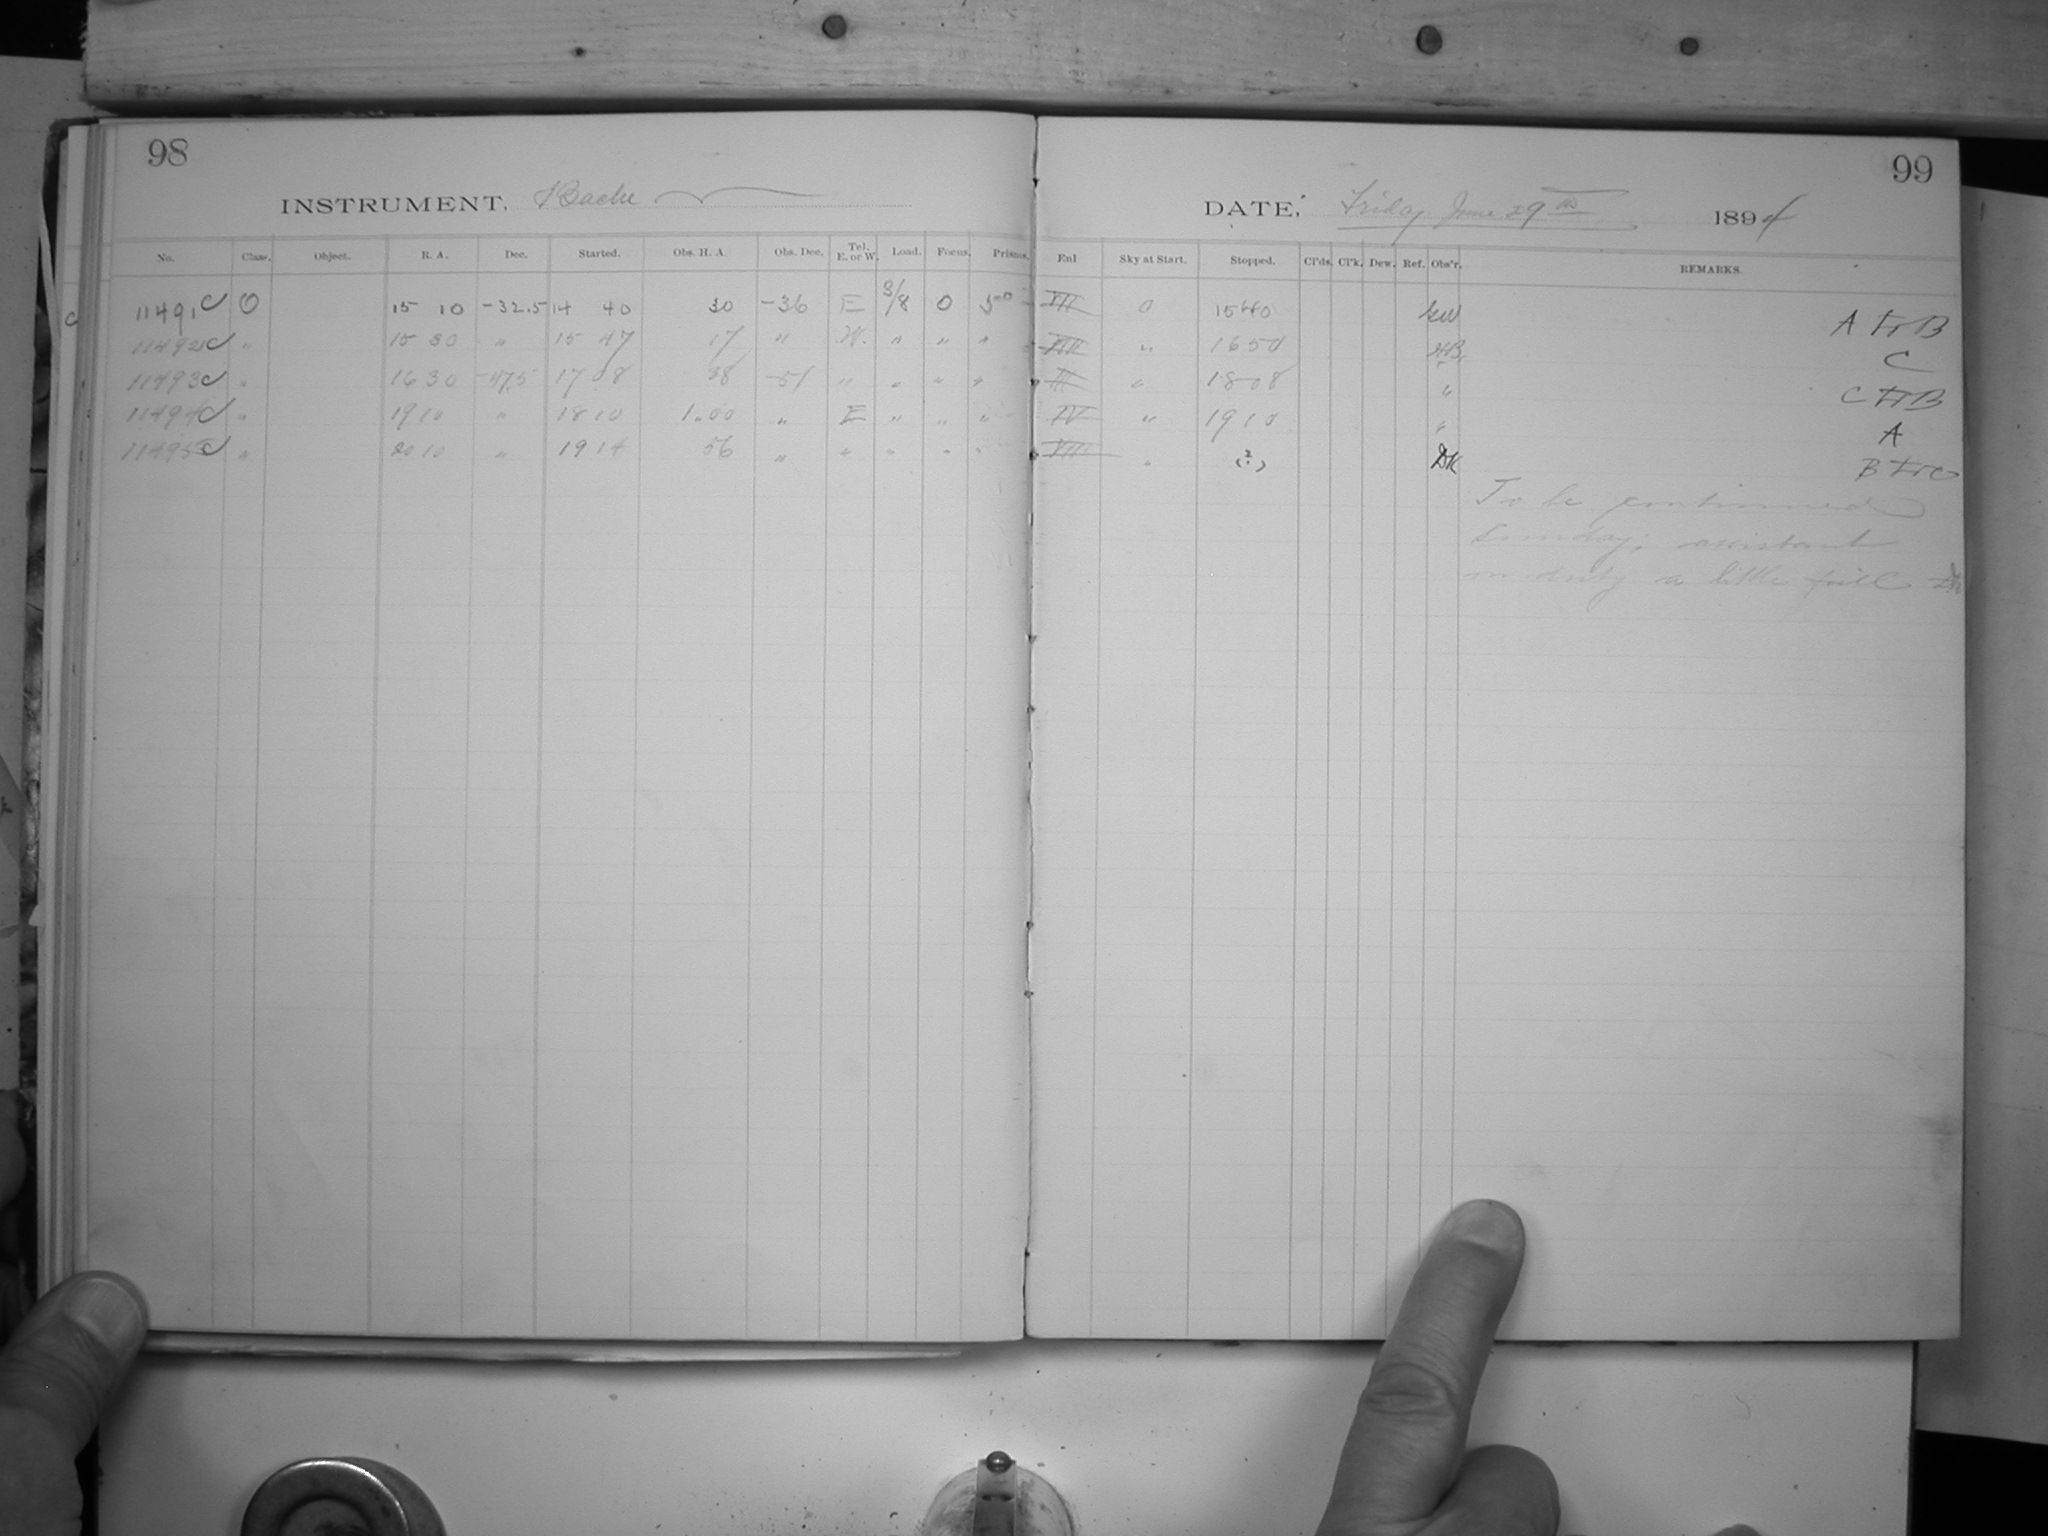 98
99
INSTRUMENT, Bache
DATE, Friday June 29th 1894
No. Class. Object. R. A. Dec. Started. Obs. H. A. Obs. Dec. Tel. E. or W. Load. Focus. Prisms. Enl Sky at Start. Stopped. Cl'ds. Cl'k. Dew. Ref. Obs'r. REMARKS.
11491 C O 15 10 -32.5 14 40 30 -36 E 3/8 0 VII 0 1540 A FrB
11492 C " 15 30 " 15 47 17 " W. " " " VIII " 1650 HB. C
11493 C " 16 30 -47.5 17 08 38 -51 " " " " " 1808 " C FrB
11494 C " 19 10 " 18 10 1.00 " E " " " IV " 1910 " A
11495 C " 20 10 " 19 14 56 " " " " " VIII " (?) DK B FrC
To be continued
Sunday; assistant
on duty a little ill DK